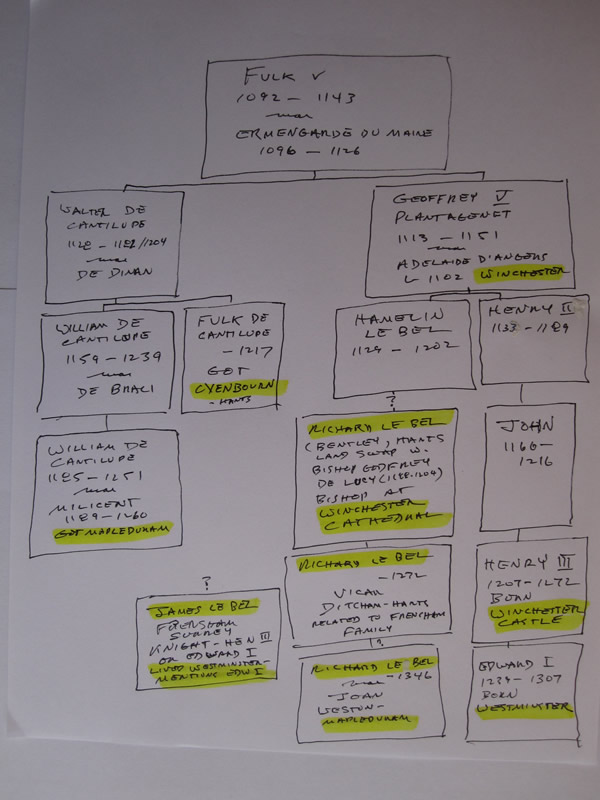 FULK V
1092 – 1143
mar
ERMENGARDE DU MAINE
1096 – 1126
WALTER DE
CANTILUPE
1128 – 1182/1204
mar
DE DINAN
GEOFFREY V
PLANTAGENET
1113 – 1151
mar
ADELAIDE D'ANGERS
1102 WINCHESTER
WILLIAM DE
CANTILUPE
1159 – 1239
mar
DE BRACI
FULK DE
CANTILUPE
– 1217
GOT
CYENBOURN
– HANTS
HAMELIN
LE BEL
1129 – 1202
HENRY II
1133 – 1189
WILLIAM DE
CANTILUPE
1185 – 1251
mar
MILICENT
1189 – 1260
GOT MAPLEDURHAM
?
RICHARD LE BEL
(BENTLEY, HANTS
LAND SWAP W.
BISHOP GODFREY
DE LUCY (1188-1204)
BISHOP AT
WINCHESTER
CATHEDRAL
JOHN
1166 –
1216
RICHARD LE BEL
– 1272
VICAR
DITCHAM – HANTS
RELATED TO FRENSHAM
FAMILY
HENRY III
1207 – 1272
BORN
WINCHESTER
CASTLE
?
JAMES LE BEL
FRENSHAM
SURREY
KNIGHT – HEN III
OR EDWARD I
LIVED WESTMINSTER –
MENTIONS EDW I
?
RICHARD LE BEL
mar – 1346
JOAN
WESTON –
MAPLEDURHAM
EDWARD I
1239 – 1307
BORN
WESTMINSTER